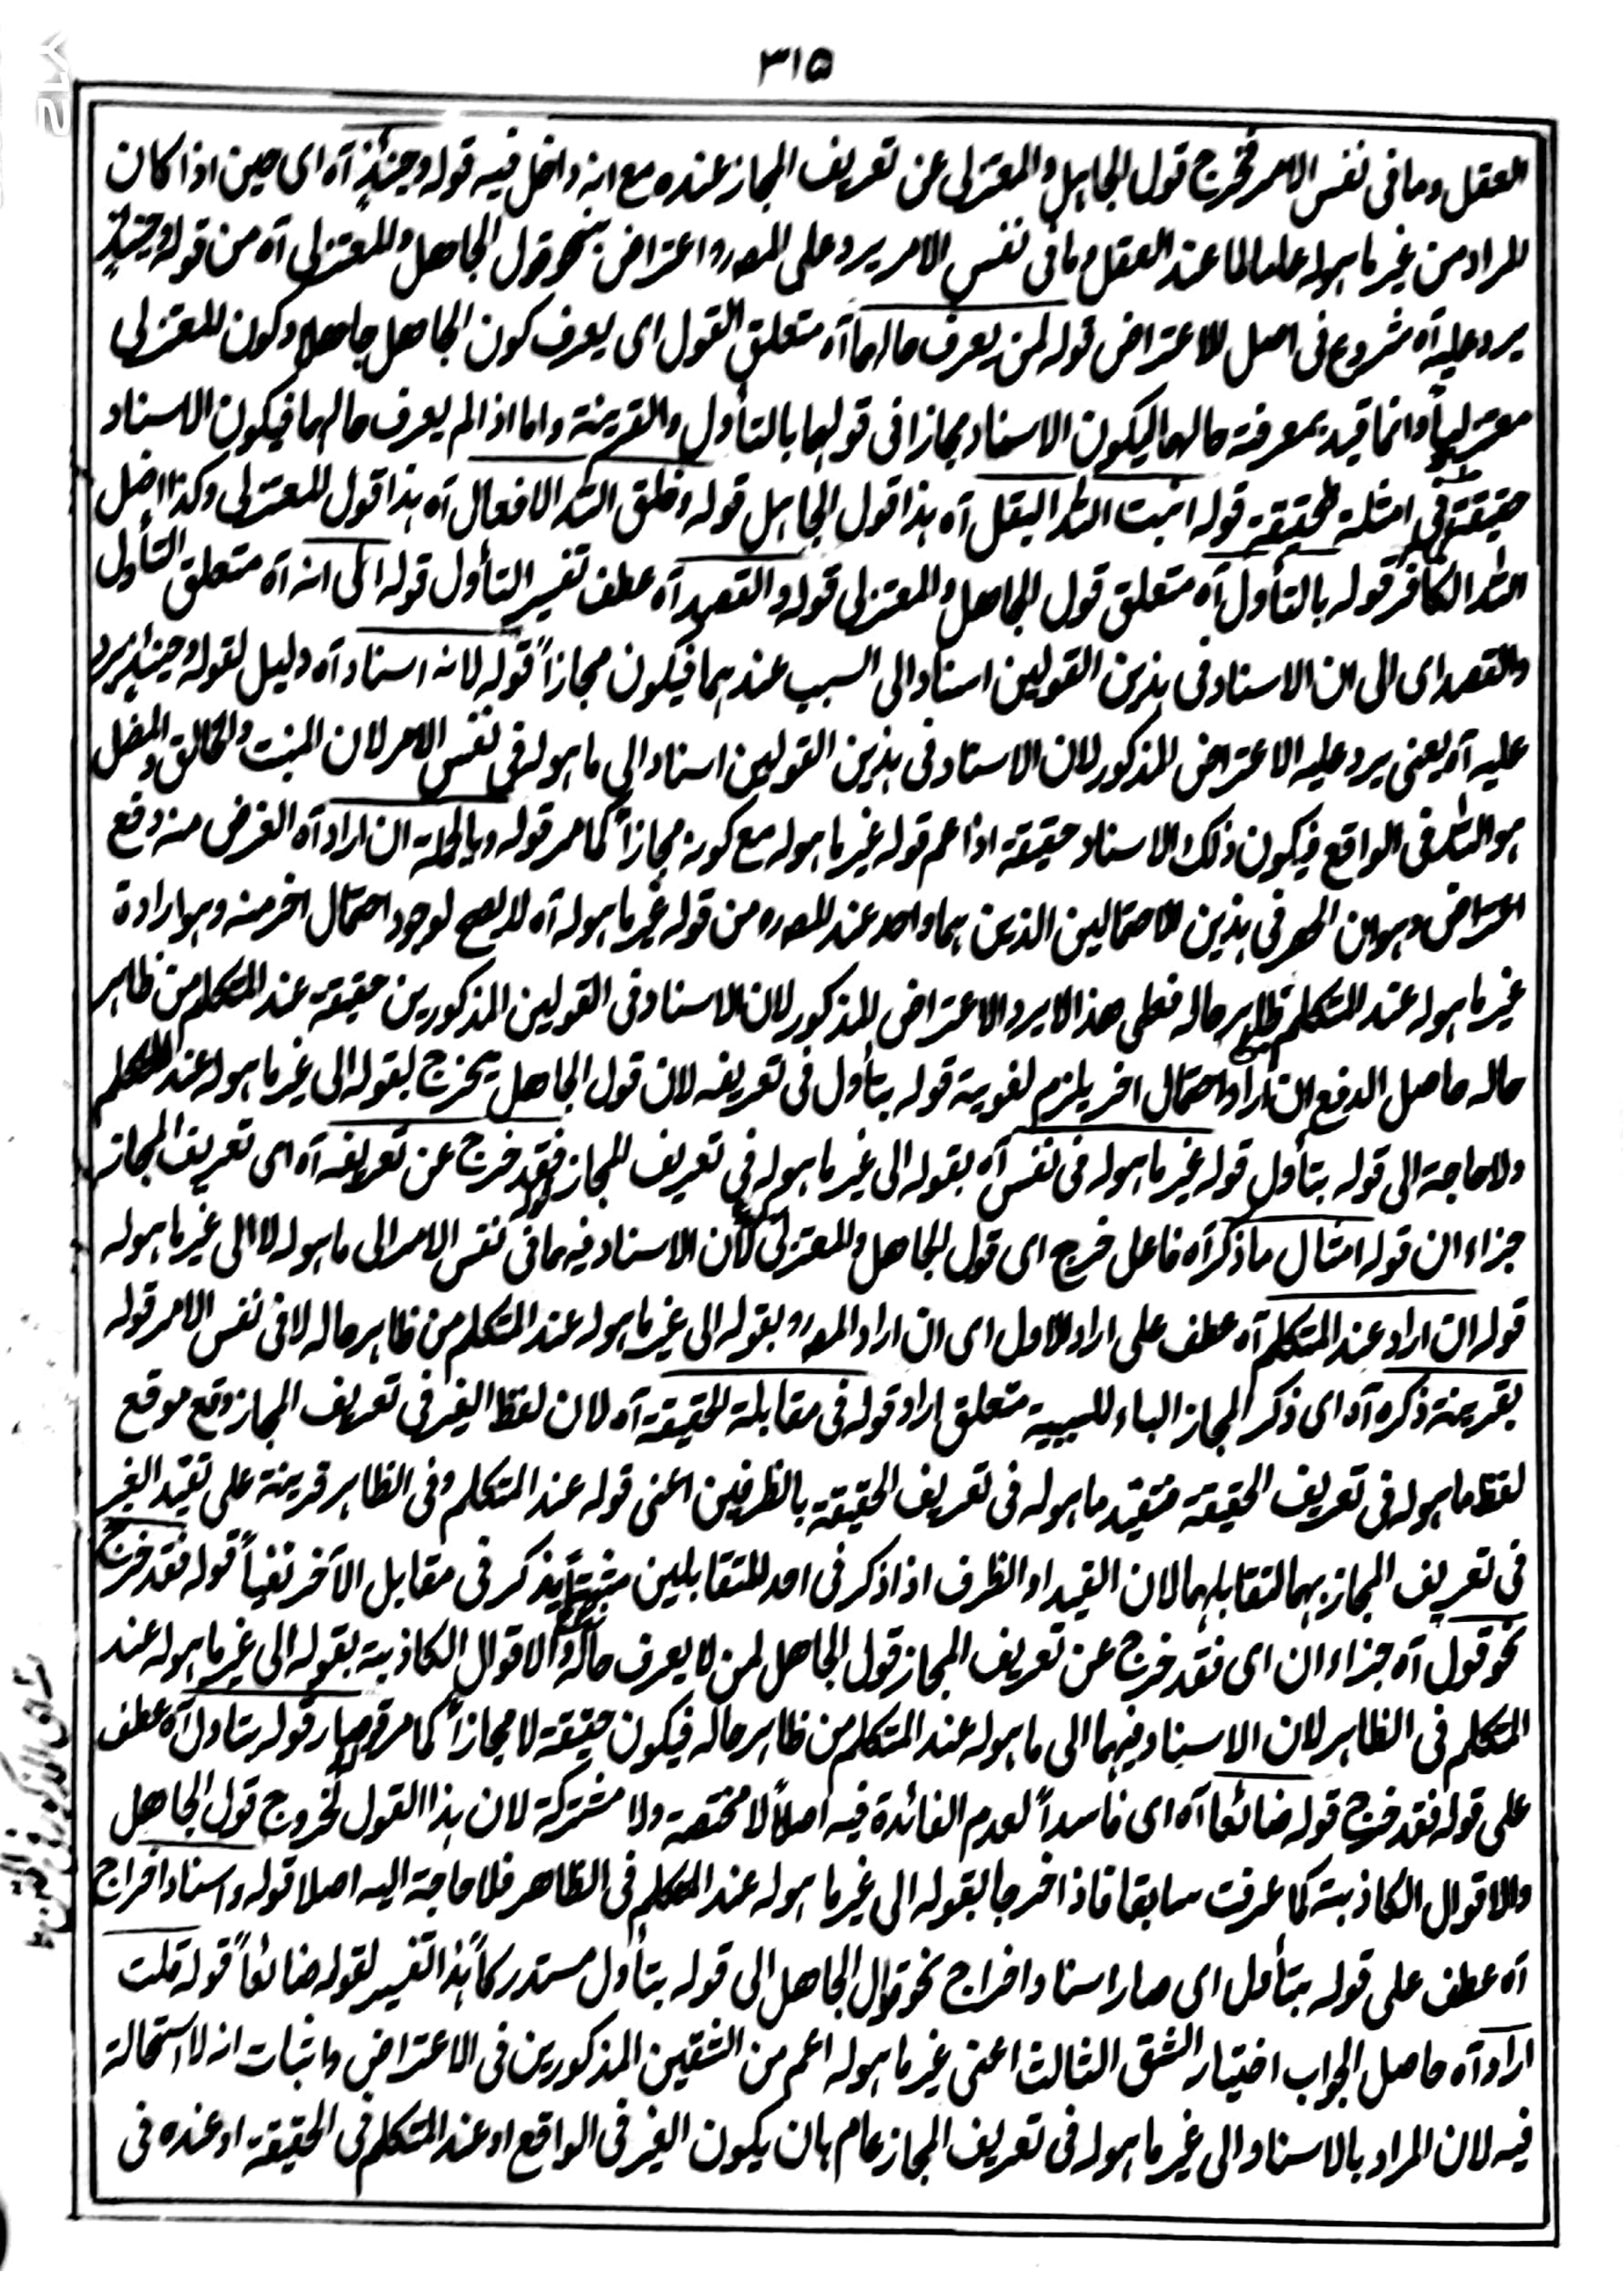 ۳۱۵
العقل وما فى نفس الامر فخرج قول الجاهل والمعتزلى عن تعريف المجاز عنده مع انه داخل فيه قوله وحينئذٍ آه اى حين اذا كان
المراد من غير ما هو له عند العقل وما فى نفس الامر يرد على المصرو اعتراض بنحو قول الجاهل والمعتزلى آه من قوله وحينئذٍ
يرد عليه آه شروع فى اصل الاعتراض قوله لمن يعرف حالهما آه متعلق القول اى يعرف كون الجاهل جاهلا وكون المعتزلى
معتزلياً وانما قيد بمعرفة حالهما ليكون الاسناد مجازا فى قولهما بالتأول والقرينة واما اذا لم يعرف حالهما فيكون الاسناد
حقيقة فى امثلة الحقيقة قوله انبت الله البقل آه هذا قول الجاهل قوله وخلق الله الافعال آه هذا قول المعتزلى وكذا اضل
الله الكافر قوله بالتأول آه متعلق قول الجاهل والمعتزلى قوله والقصد آه عطف تفسير التأول قوله الى انه آه متعلق التأول
والقصد اى الى ان الاسناد فى هذين القولين اسناد الى السبب عندهما فيكون مجازاً قوله لانه اسناد آه دليل لقوله وحينئذ يرد
عليه آه يعنى يرد عليه الاعتراض المذكور لان الاسناد فى هذين القولين اسناد الى ما هو له فى نفس الامر لان المنبت والخالق والمضل
هو الله فى الواقع فيكون ذلك الاسناد حقيقة اذا عم قوله غير ما هو له مع كونه مجازاً كما مر قوله وبالجملة ان اراد آه الغرض منه دفع
اعتراض وهو ان الحصر فى هذين الاحتمالين الذين هما واحد عند المصره من قوله غير ما هو له آه لا يصح لوجود احتمال اخر منه وهو ارادة
غير ما هو له عند المتكلم ظاهر حاله فعلى هذا لا يرد الاعتراض المذكور لان الاسناد فى القولين المذكورين حقيقة عند المتكلم من ظاهر
حاله حاصل الدفع ان اراد احتمال اخر يلزم لغوية قوله بتأول فى تعريفه لان قول الجاهل يخرج بقوله الى غير ما هو له عند المتكلم
ولا حاجة الى قوله بتأول قوله غير ما هو له فى نفس آه بقوله الى غير ما هو له فى تعريف المجاز فقد خرج عن تعريفه آه اى تعريف المجاز
جزاء ان قوله امثال ما ذكر آه فاعل خرج اى قول الجاهل والمعتزلى لان الاسناد فيه ما فى نفس الامر الى ما هو له لا الى غير ما هو له
قوله ان اراد عند المتكلم آه عطف على اراد الاول اى ان اراد المصرو بقوله الى غير ما هو له عند المتكلم من ظاهر حاله لا فى نفس الامر قوله
بقرينة ذكره آه اى ذكر المجاز الباء للسببية متعلق اراد قوله فى مقابلة الحقيقة آه لان لفظ الغير فى تعريف المجاز وقع موقع
لفظ ما هو له فى تعريف الحقيقة فتقيد ما هو له فى تعريف الحقيقة بالظرفين اعنى قوله عند المتكلم وفى الظاهر قرينة على تقيد الغير
فى تعريف المجاز بهما لتقابلهما لان القيد او الظرف اذا ذكر فى احد المتقابلين مثبتاً يذكر فى مقابل الآخر نفياً قوله فقد خرج
نحو قول آه جزاء ان اى فقد خرج عن تعريف المجاز قول الجاهل لمن لا يعرف حاله والاقوال الكاذبة بقوله الى غير ما هو له عند
المتكلم فى الظاهر لان الاسناد فيهما الى ما هو له عند المتكلم من ظاهر حاله فيكون حقيقة لا مجازاً كما مر قوله وصار قوله بتاول آه عطف
على قوله فقد خرج قوله ضائعا آه اى فاسداً لعدم الفائدة فيه اصلاً لا مختصة ولا مشتركة لان هذا القول لخروج قول الجاهل
والاقوال الكاذبة كما عرفت سابقا فاذا خرجا بقوله الى غير ما هو له عند المتكلم فى الظاهر فلا حاجة اليه اصلا قوله واسناد اخراج
آه عطف على قوله بتأول اى صار اسناد اخراج نحو قول الجاهل الى قوله بتأول مستدركاً هذا تفسير لقوله ضائعاً قوله قلت
اراد آه حاصل الجواب اختيار الشق الثالث اعنى غير ما هو له اعم من الشقين المذكورين فى الاعتراض واثبات انه لا استحالة
فيه لان المراد بالاسناد الى غير ما هو له فى تعريف المجاز عام بان يكون الغير فى الواقع او عند المتكلم فى الحقيقة او عنده فى